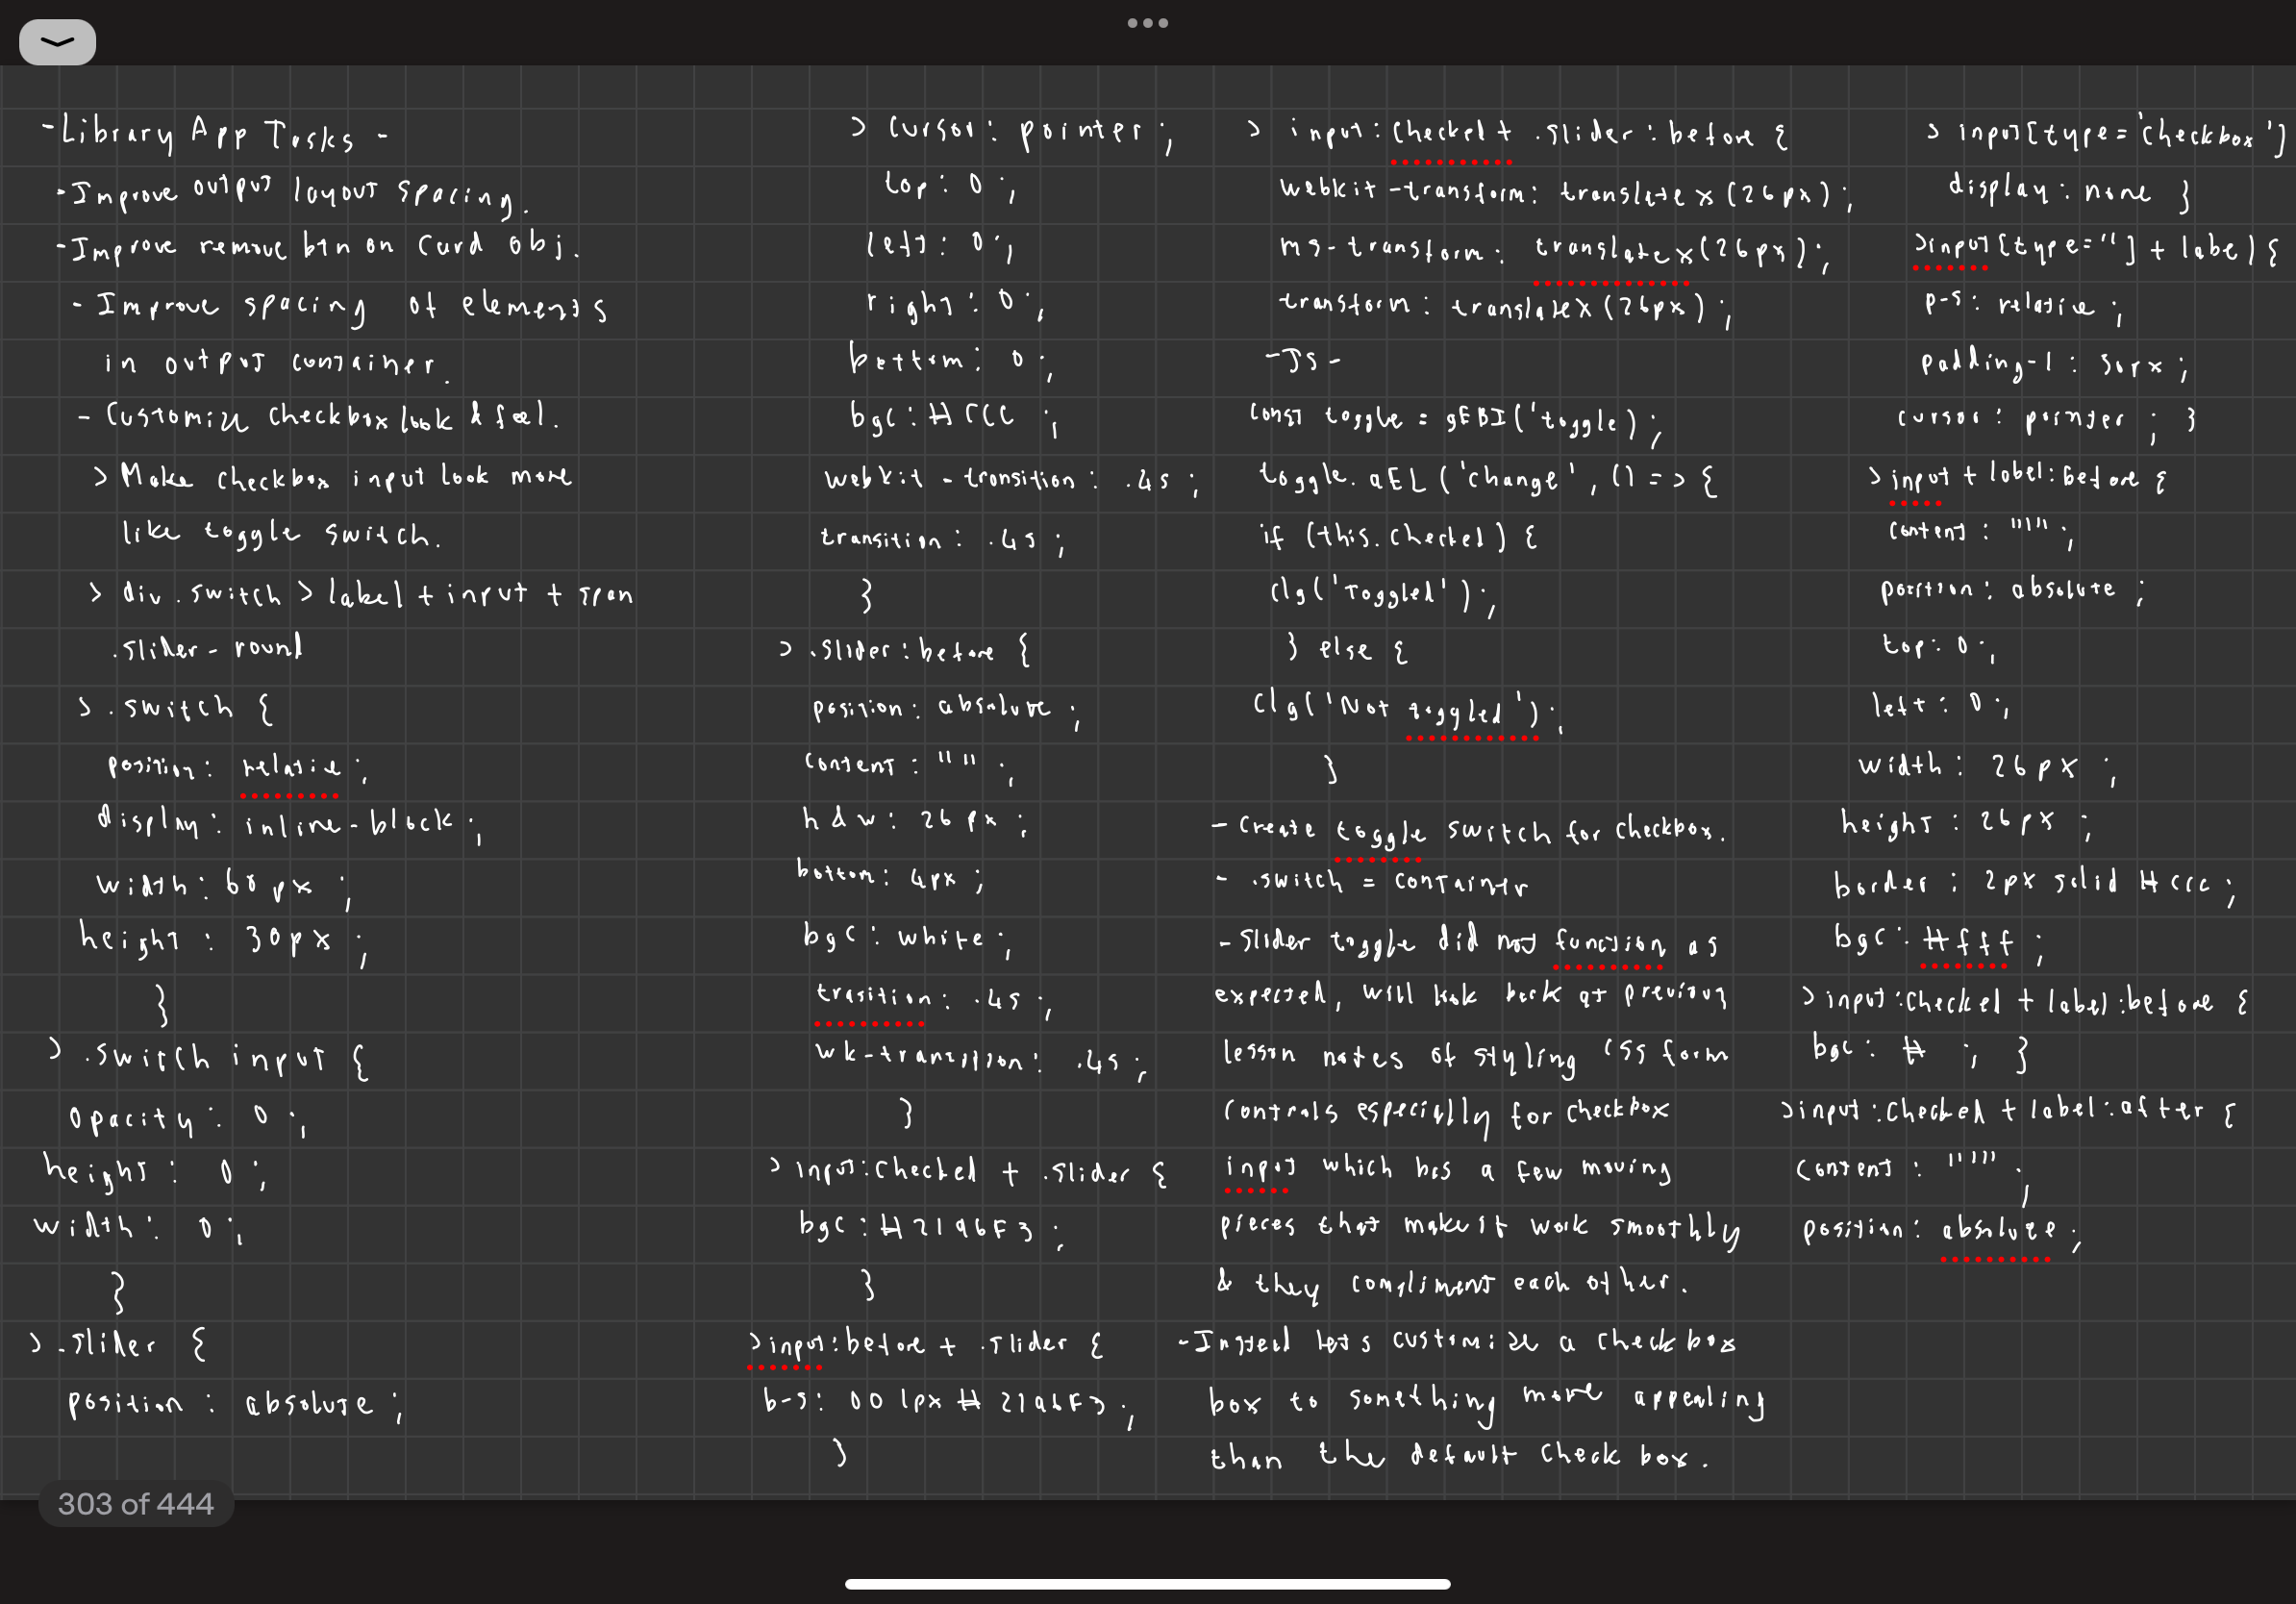 -Library App Tasks-
-Improve output layout spacing.
-Improve remove btn on Card obj.
- Improve spacing of elements
in output container.
- Customize checkbox look & feel.
> Make checkbox input look more
like toggle switch.
> div.switch > label + input + span
.slider-round
> .switch {
position: relatie;
display: inline-block;
width: 60px;
height: 30px;
}
> .switch input {
opacity: 0;
height: 0;
width: 0;
}
> .slider {
position: absolute;
> cursor: pointer;
top: 0;
left: 0;
right: 0;
bottom: 0;
bgc: #CCC;
webkit-transition: .4s;
transition: .4s;
}
> .slider:before {
position: absolute;
content: "";
h&w: 26px;
bottom: 4px;
bgc: white;
trasition: .4s;
wk-transition: .4s;
}
> input:checked + .slider {
bgc: #2196F3;
}
>input:before + .slider {
b-s: 0 0 1px #2196F3;
}
> input:checked + .slider:before {
webkit-transform: translatex(26px);
ms-transform: translatex(26px);
transform: translatex(26px);
-JS-
const toggle = gEBI('toggle);
toggle.aEL('change', () => {
if (this.checked) {
clg('Toggled');
} else {
clg('Not toggled');
}
- Create toggle switch for checkbox.
- .switch = container
- Slider toggle did not function as
expected, will look back at previous
lesson notes of styling CSS form
controls especially for checkbox
input which has a few moving
pieces that make it work smoothly
& they compliment each other.
-Instead lets customize a checkbox
box to something more appealing
than the default check box.
> input[type='checkbox']
display: none }
>input[type=''] + label {
p-s: relative;
padding-l: 30px;
cursor: pointer; }
> input + label:before {
content: "";
position: absolute;
top: 0;
left: 0;
width: 26px;
height: 26px;
border: 2px solid #ccc;
bgc: #fff;
> input:checked + label:before {
bgc: # ; }
>input:checked + label:after {
content: "";
position: absolute;
303 of 444